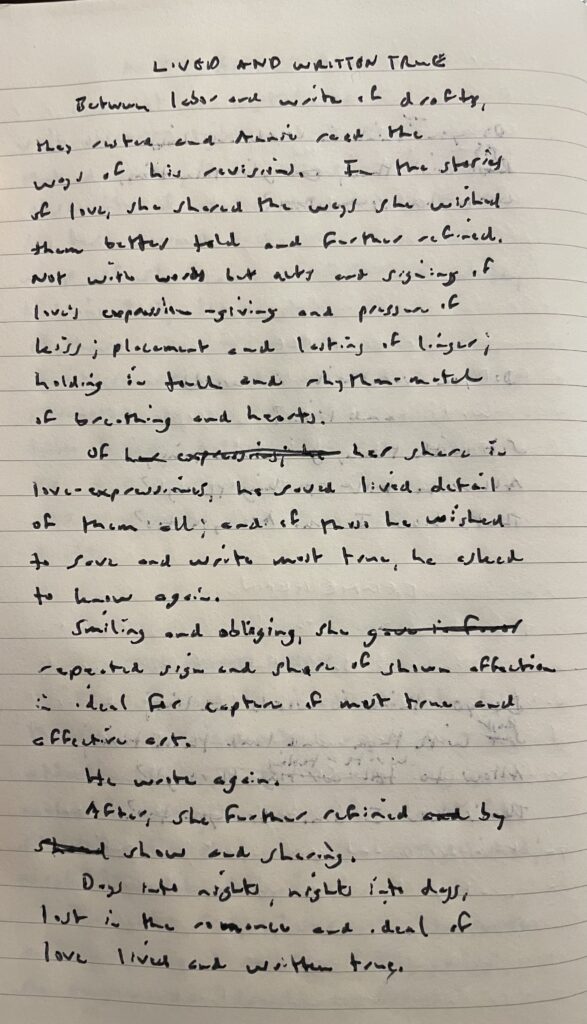 LIVED AND WRITTEN TRUE
Between labor and write of drafts,
they rested and Annie read the
ways of his revisions. In the stories
of love, she shared the ways she wished
them better told and further refined.
Not with words but acts and signing of
love's expression - giving and pressure of
kiss; placement and lasting of linger;
holding in touch and rhythm-match
of breathing and hearts.
Of her expressing; he her share in
love-expressions, he saved lived detail
of them all; and if those he wished
to save and write most true, he asked
to know again.
Smiling and obliging, she gave in favor
repeated sign and share of shown affection
in ideal for capture of most true and
affective art.
He wrote again.
After, she further refined and by
show and sharing.
Days into nights, nights into days,
lost in the romance and ideal of
love lived and written true.